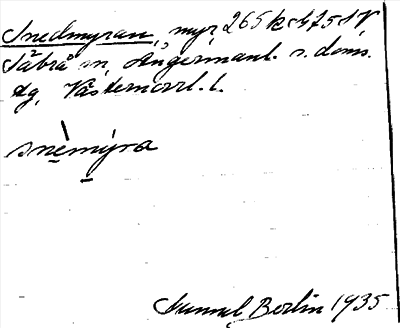 Snedmyran, myr, 265 k
Säbrå sn, Ångermanl. s. doms.
tg, Västernorrl. l.
snèmýra
Berlin 1935